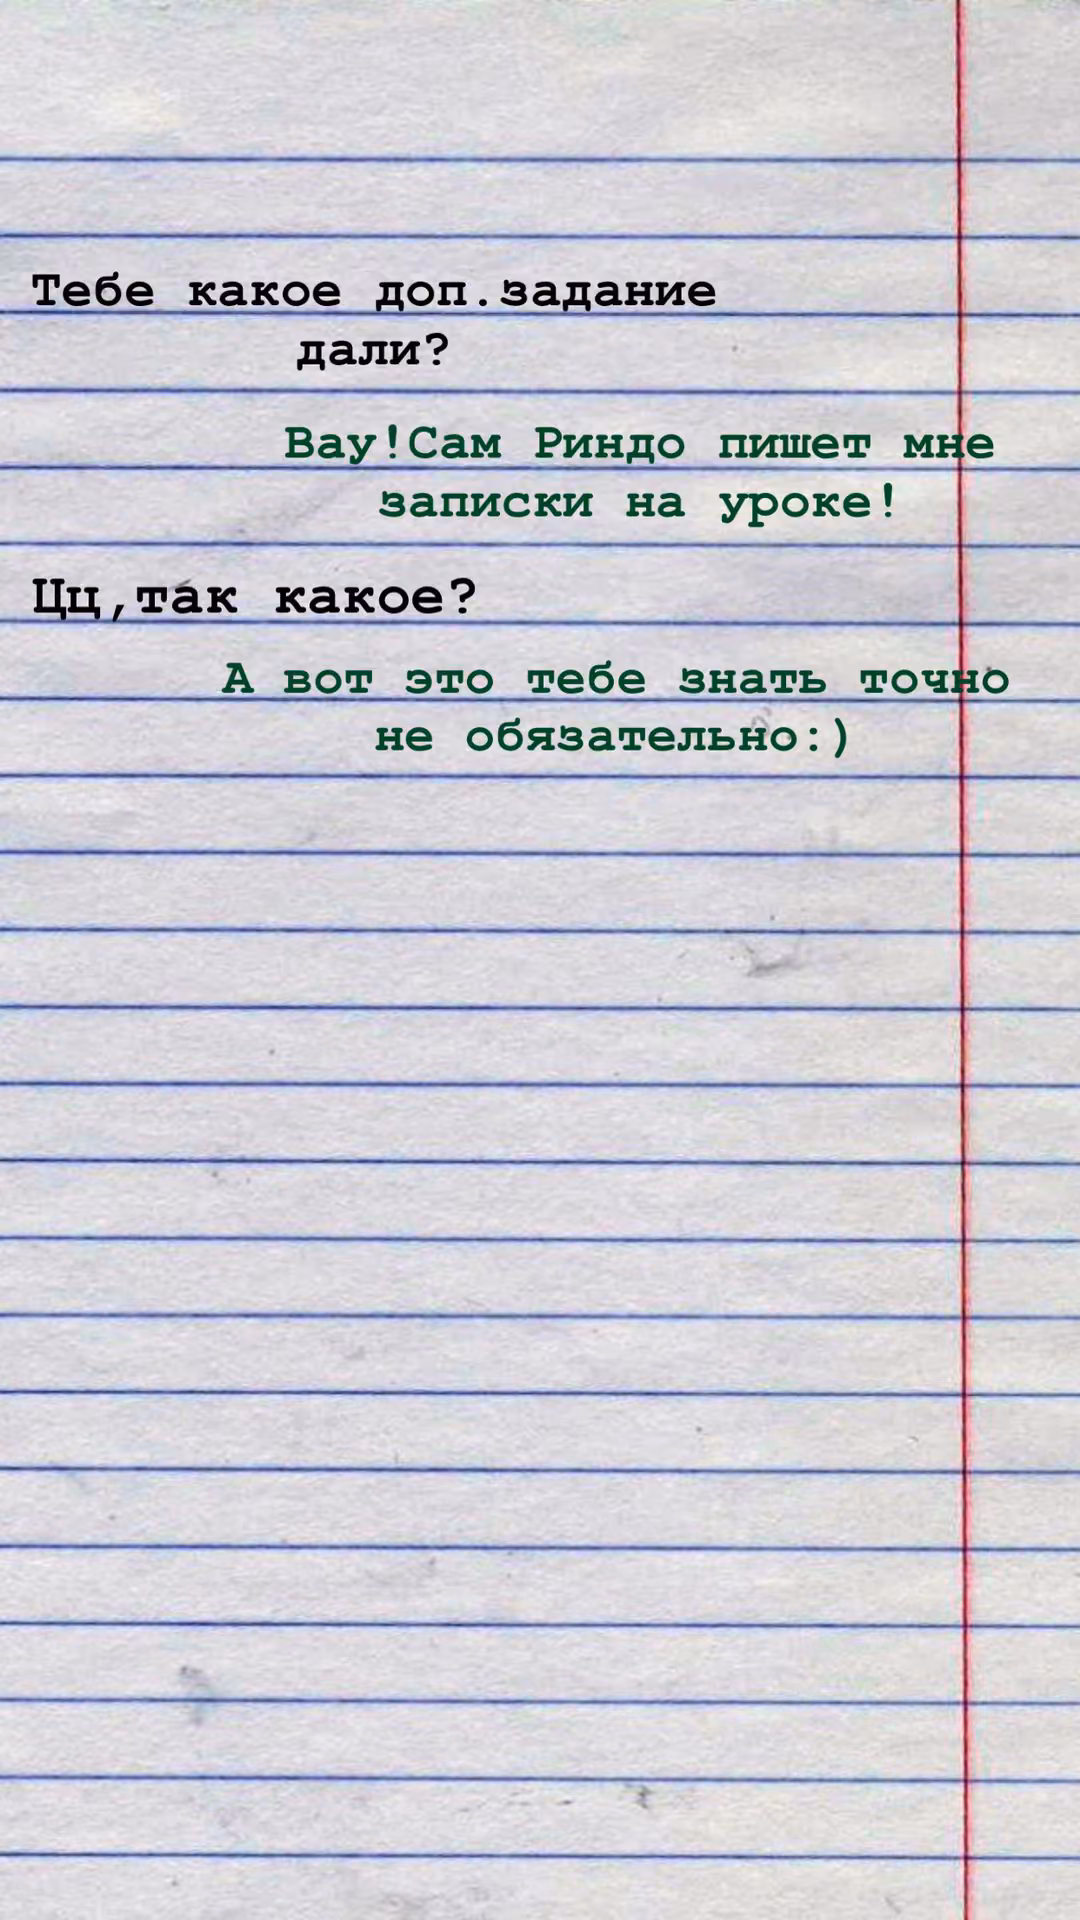 Тебе какое доп.задание
дали?
Вау!Сам Риндо пишет мне
записки на уроке!
Цц,так какое?
А вот это тебе знать точно
не обязательно:)